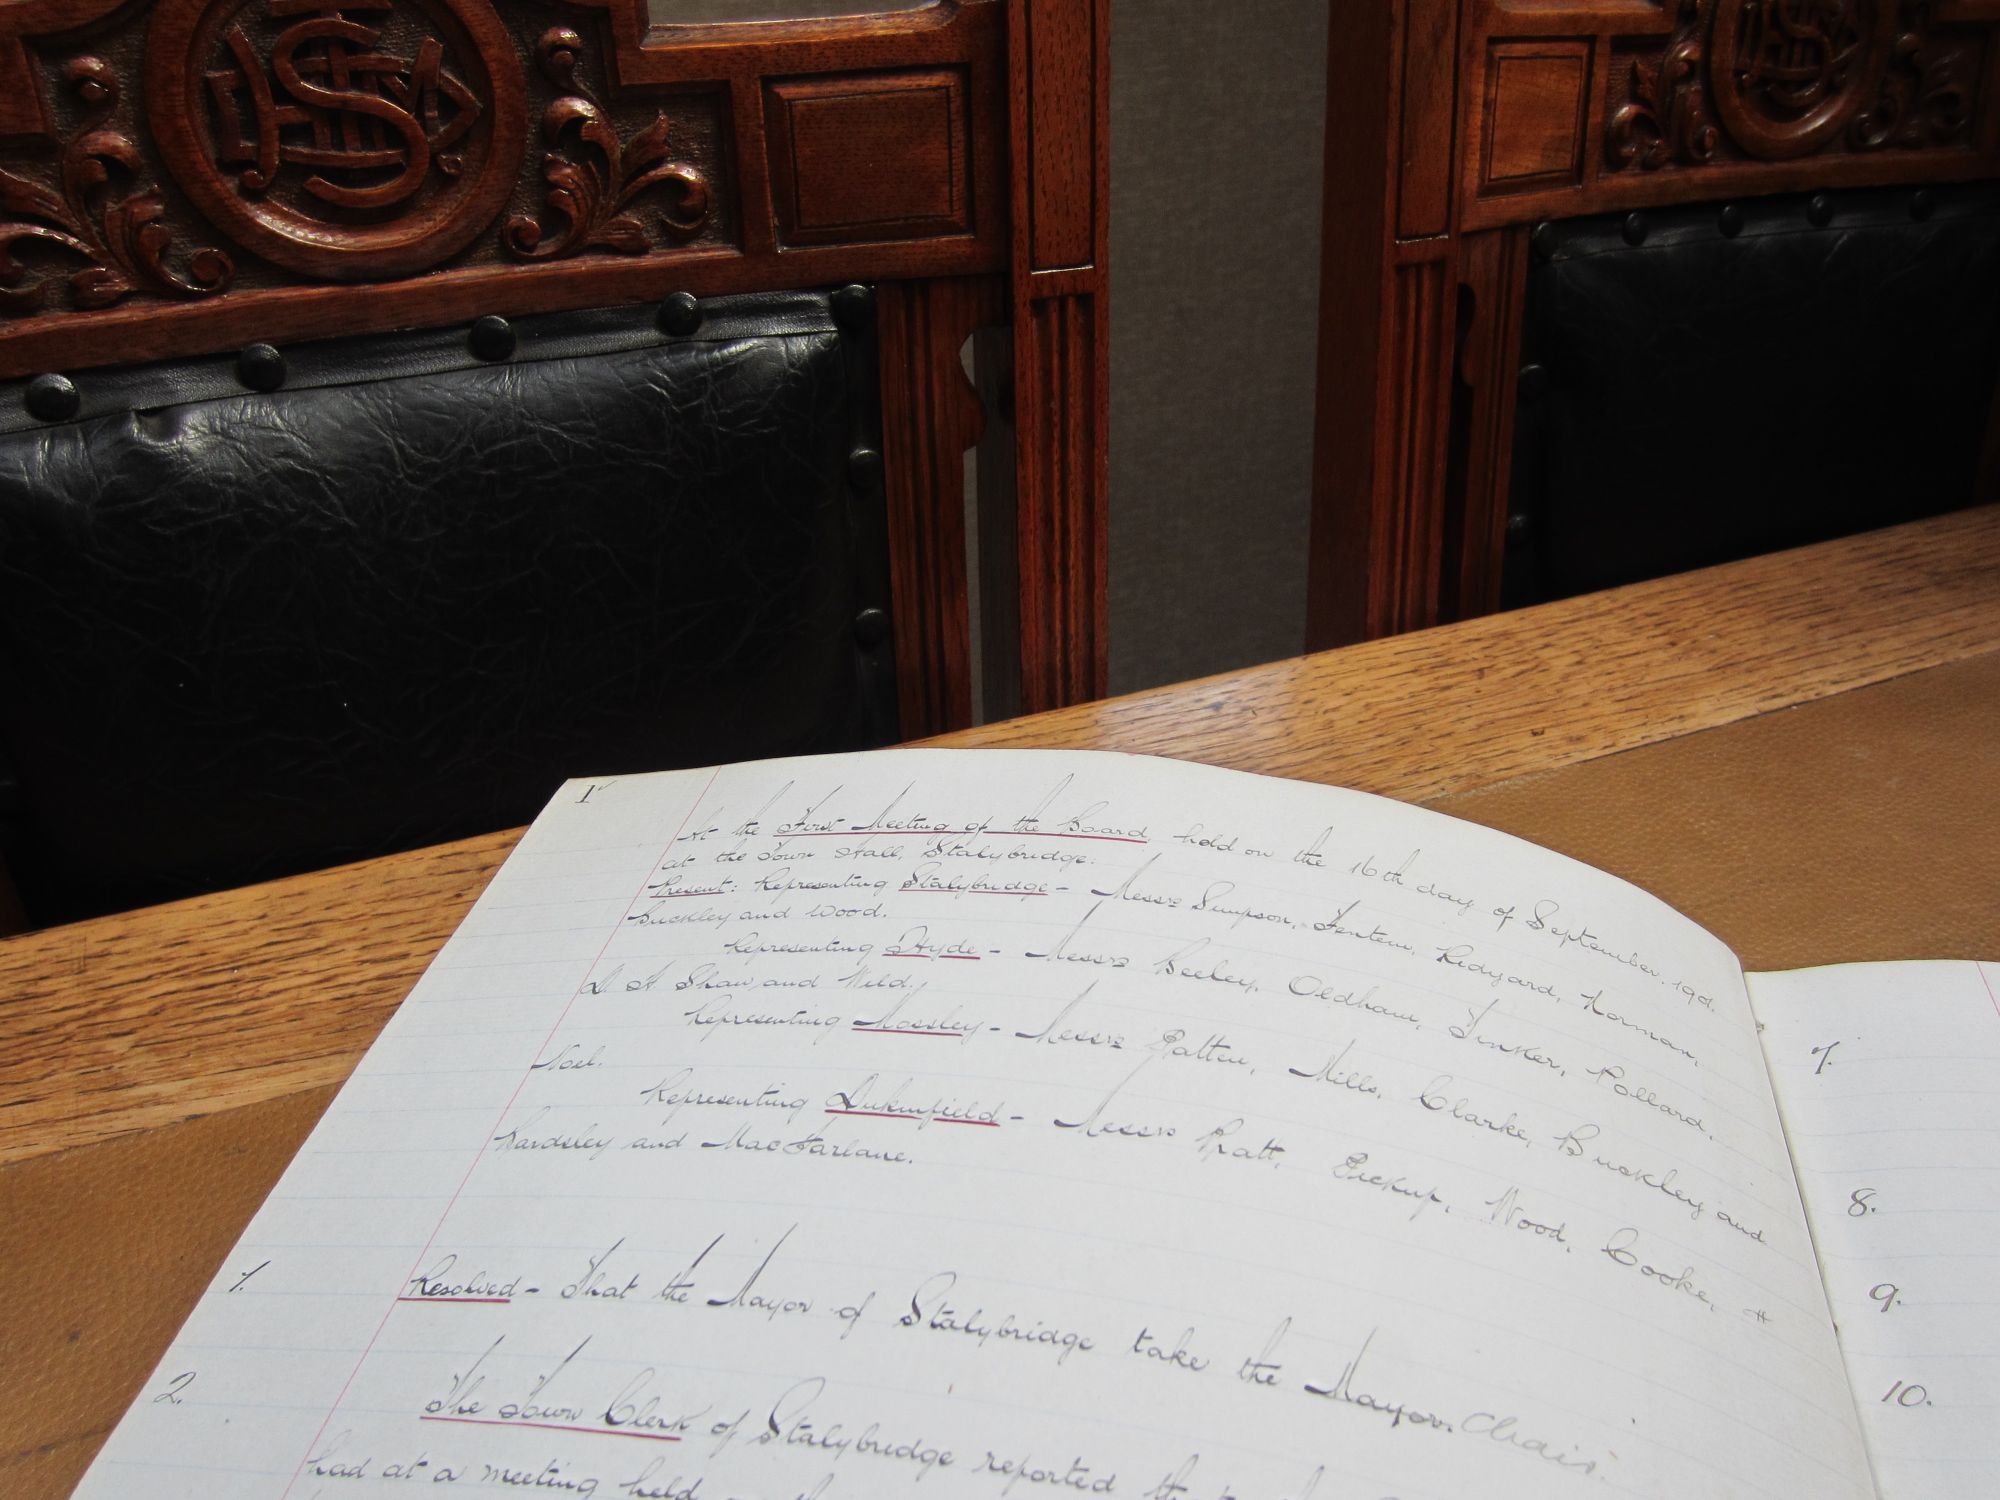 1
At the First Meeting of the Board, held on the 16th day of September, 1901.
at the Town Hall, Stalybridge.
Present: Representing Stalybridge - Messrs Simpson, Fentem, Ridyard, Norman,
Buckley and Wood.
Representing Hyde - Messrs Beeley, Oldham, Tinker, Pollard,
D. A Shaw and Wild.
Representing Mossley - Messrs Patten, Mills, Clarke, Buckley and
Noel.
Representing Dukinfield - Messrs Pratt, Pickup, Wood, Cooke, H
Bardsley and MacFarlane.
1. Resolved - That the Mayor of Stalybridge take the Mayor. Chair.
2. The Town Clerk of Stalybridge reported
had at a meeting held
7.
8.
9.
10.